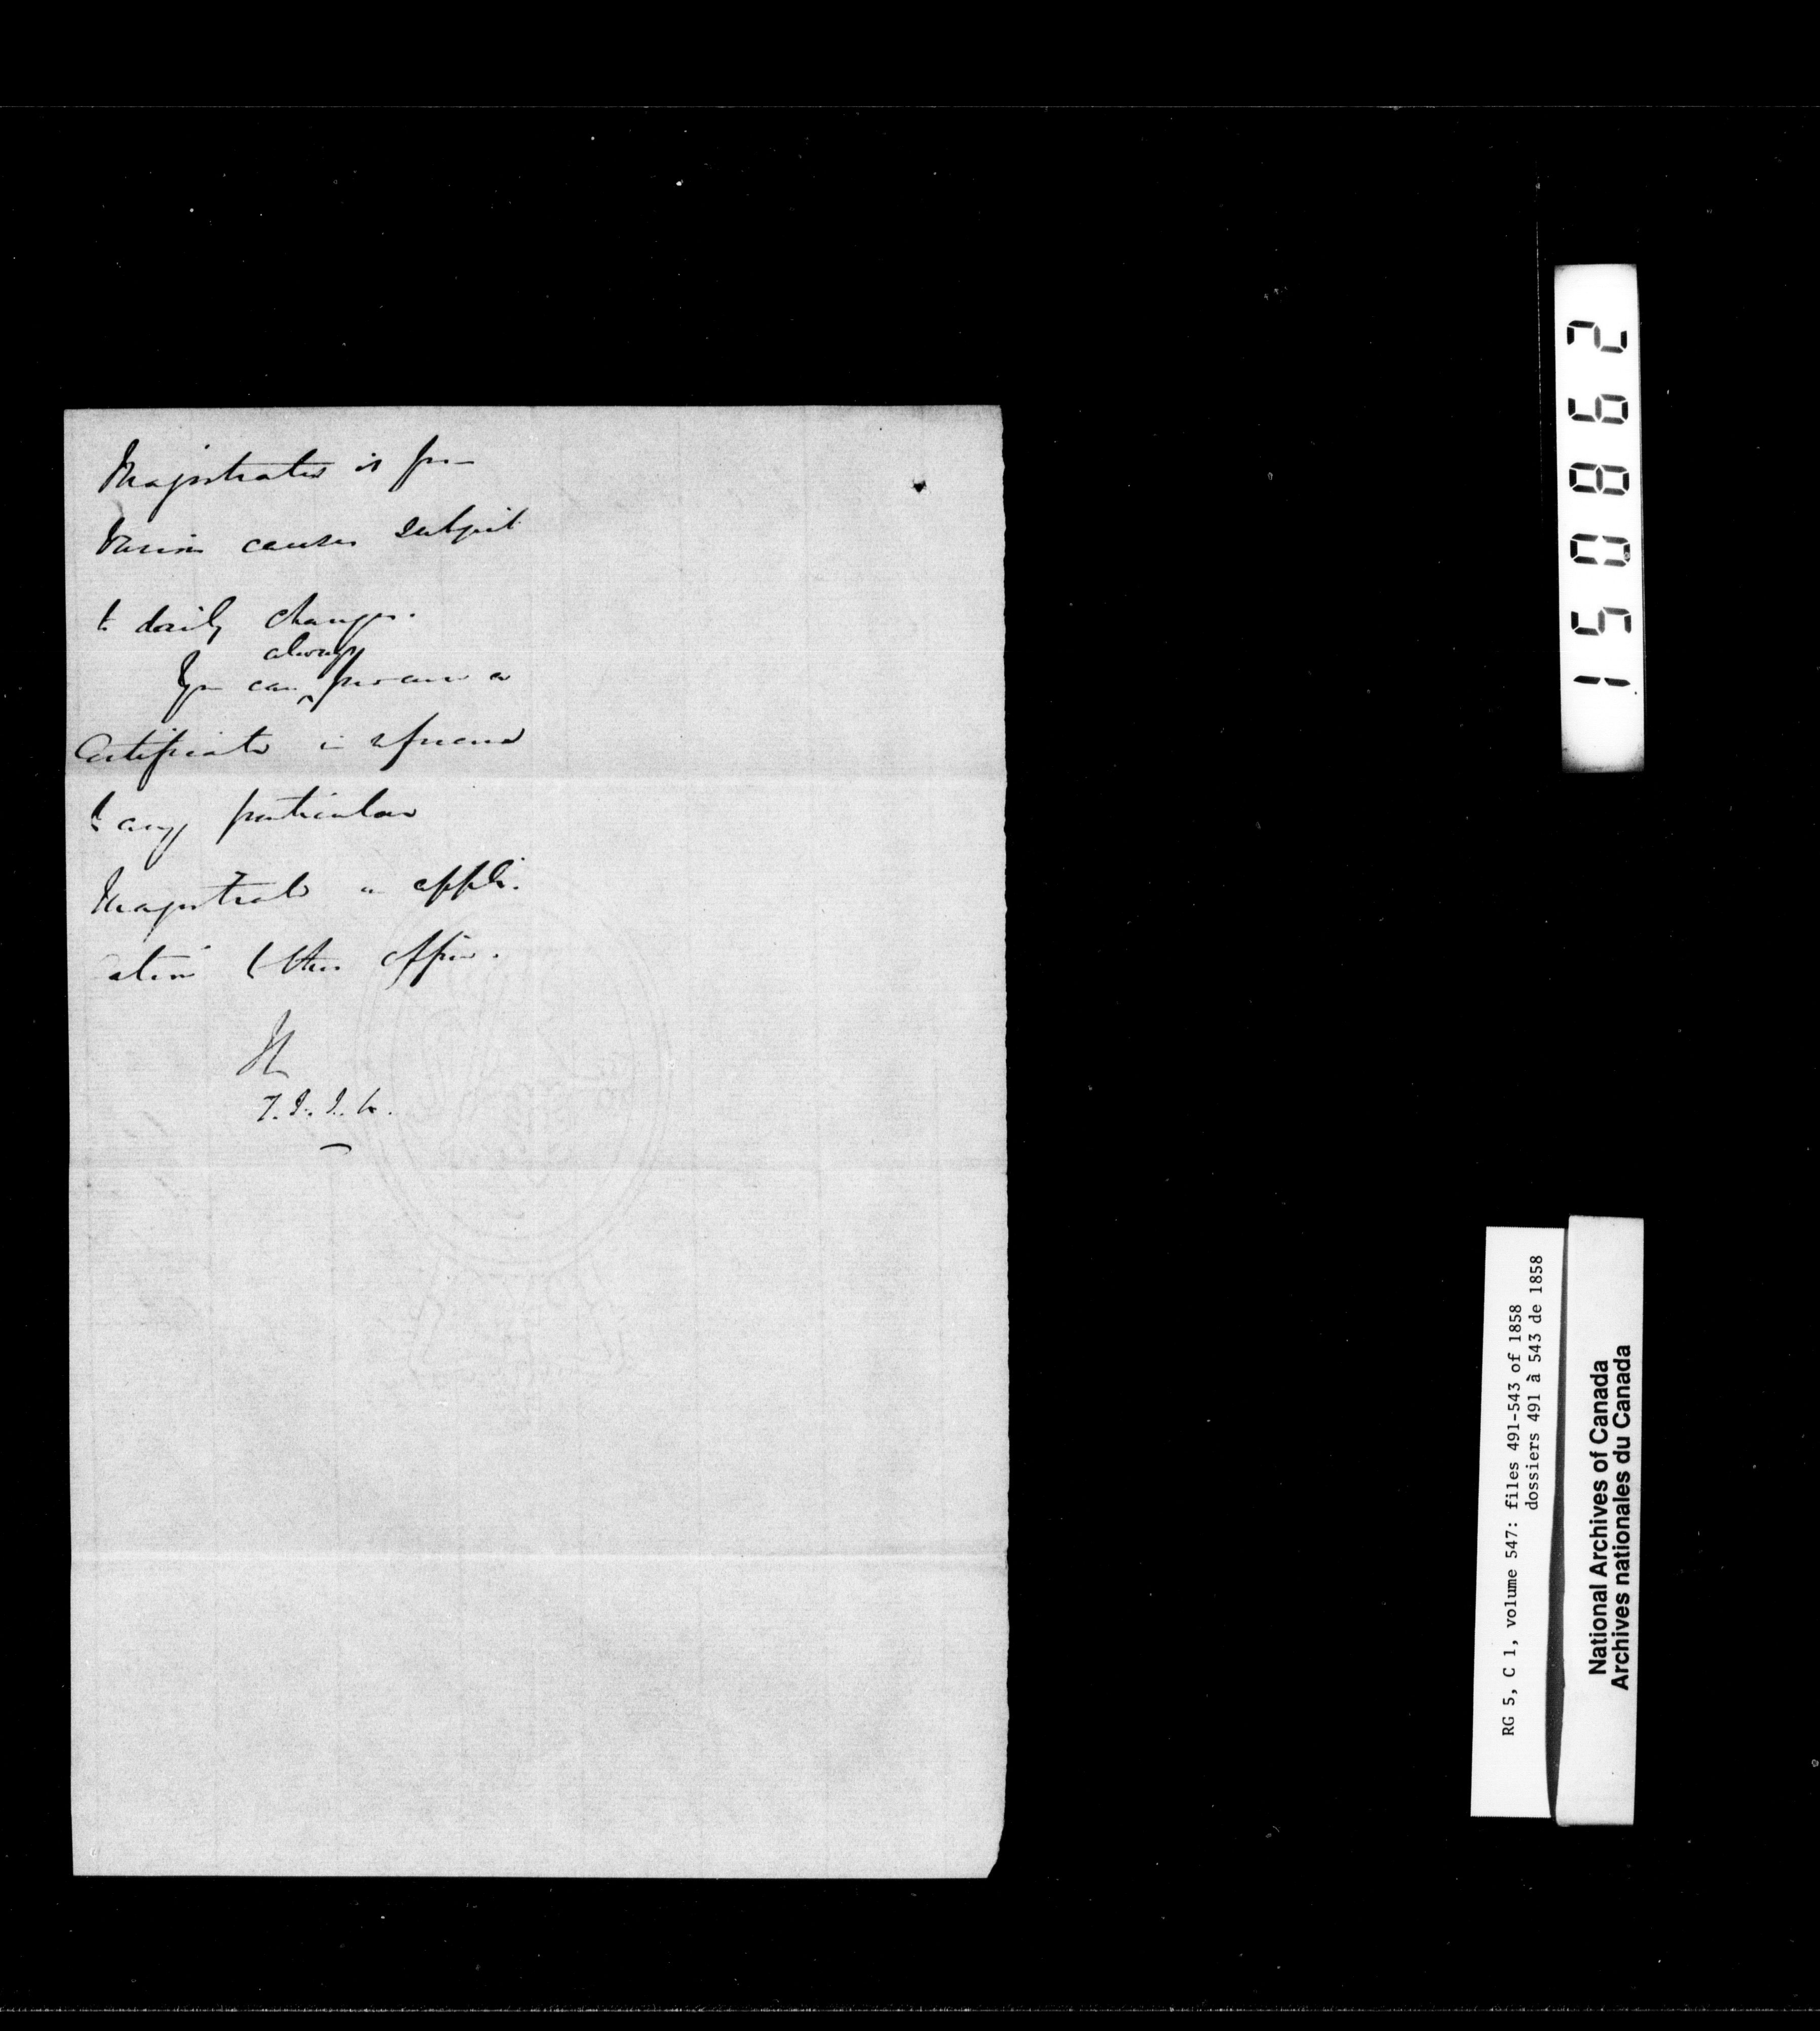 Magistrates is from
various causes subject
to daily changes.
always
You can ^ procure a
Certificate in reference
to any particular
Magistrate on appli-
cation to this office.
150862
RG 5, C 1, volume 547: files 491-543 of 1858
dossiers 491 à 543 de 1858
National Archives of Canada
Archives nationales du Canada